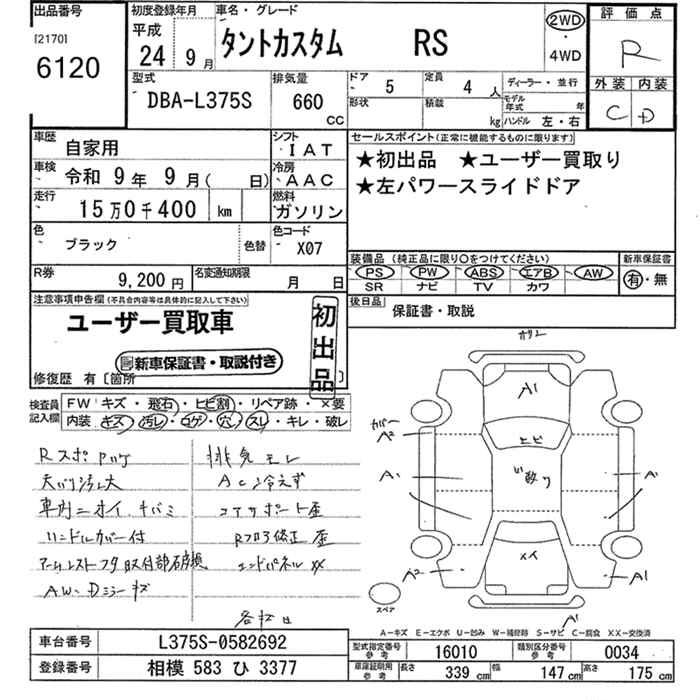 出品番号 初度登録年月 車名・グレード 評価点
[2170] 平成 2WD
6120 24 9月 タントカスタム RS ・ R
4WD
型式 排気量 ドア 5 定員 4人 ディーラー・並行 外装 内装
DBA-L375S 660 cc 形状 積載 kg モデル年式 年 C D
ハンドル 左・右
車歴 自家用 シフト IAT セールスポイント(正常に機能するものに限ります)
車検 令和 9年 9月( 日) 冷房 AAC ★初出品 ★ユーザー買取り
走行 15万0千400 km 燃料 ガソリン ★左パワースライドドア
色 ブラック 色替 色コード X07
装備品(純正品に限り〇をつけてください) 新車保証書
R券 9,200円 名変通知期限 月 日 PS PW ABS エアB AW 有・無
SR ナビ TV カワ
注意事項申告欄(不具合内容等は具体的に記入して下さい) 後日品 保証書・取説
ユーザー買取車 初出品
新車保証書・取説付き
修復歴 有[箇所 ]
検査員 FW キズ・飛石・ヒビ割・リペア跡・×要
記入欄 内装 キズ・汚レ・コゲ・穴・スレ・キレ・破レ
排気モレ
天バリ汚レ大 AC冷えず
車内ニオイ コアサポート歪
ハンドルカバー付
アームレストフタ取付部破損
AW・Dミラーキズ
A1
ヒビ
A2
A A
A2 A1
スペア
A
A―キズ E―エクボ U―凹み W―補修跡 S―サビ C―腐食 XX―交換済
車台番号 L375S-0582692 型式指定番号 参考 16010 類別区分番号 参考 0034
登録番号 相模 583 ひ 3377 車庫証明用 参考 長さ 339cm 幅 147cm 高さ 175cm